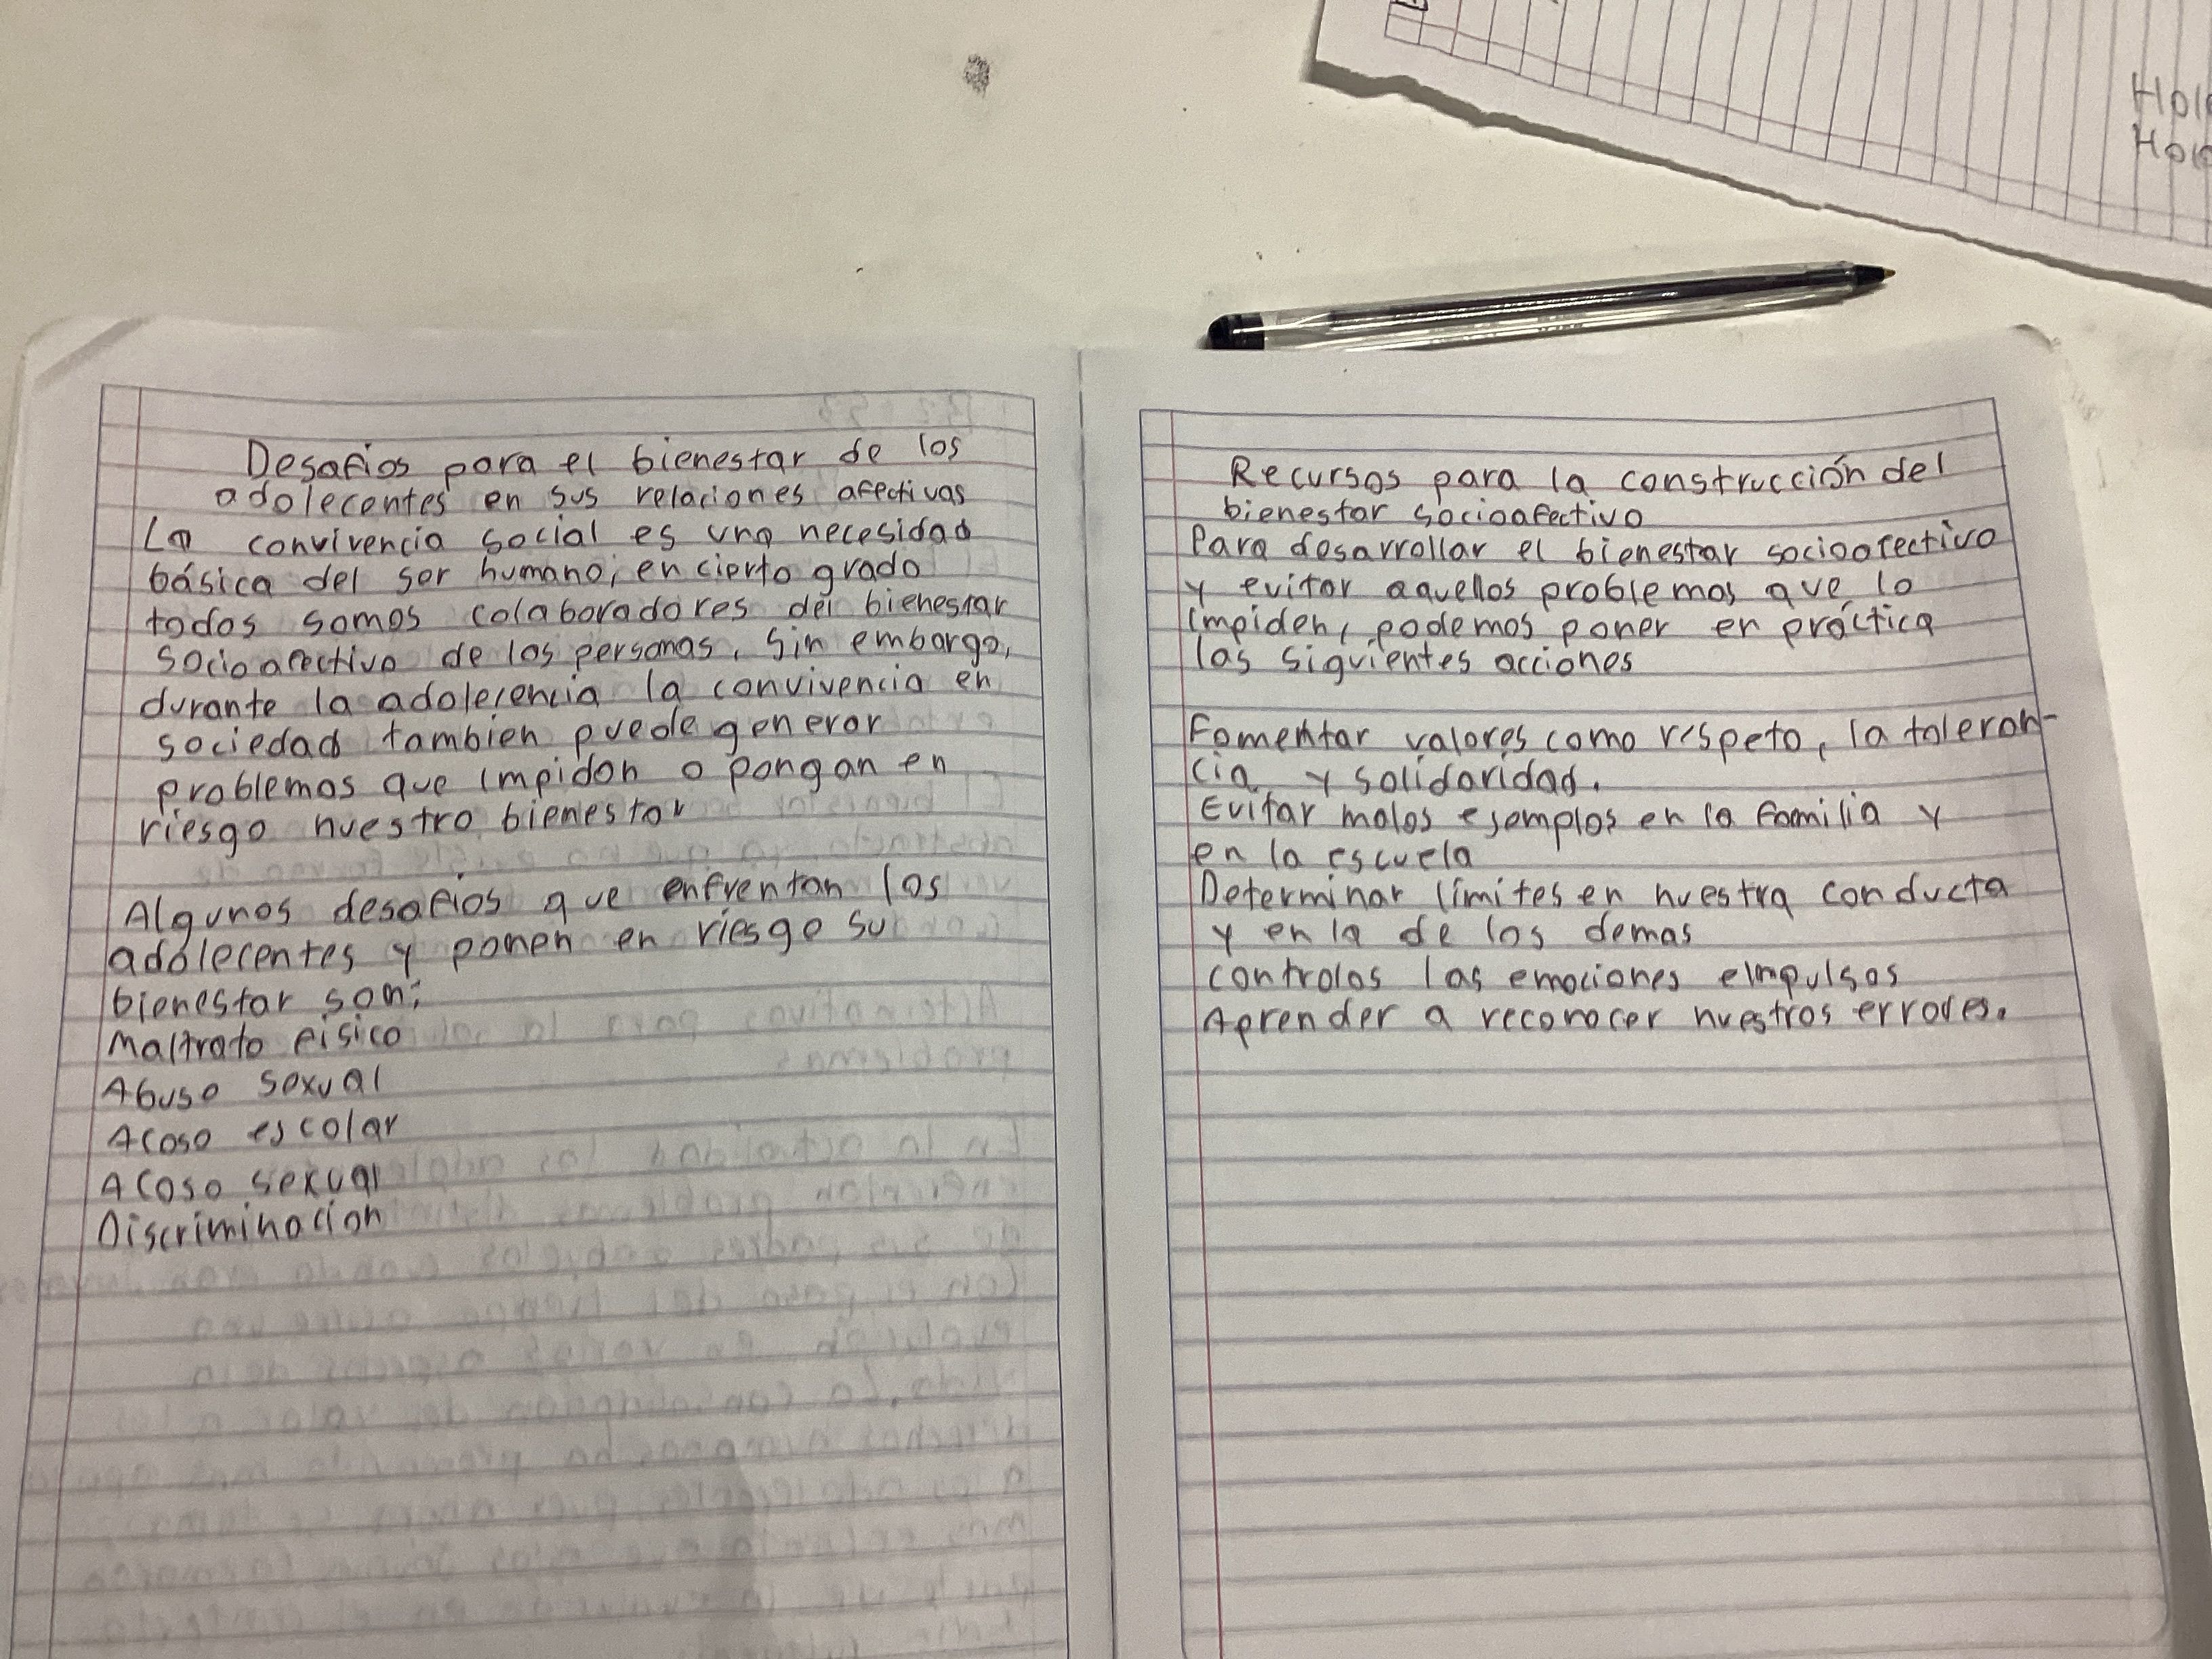 Desafios para el bienestar de los
adolecentes en sus relaciones afectivas
La convivencia social es una necesidad
básica del ser humano, en cierto grado
todos somos colaboradores del bienestar
socioafectivo de las personas. Sin embargo,
durante la adolecencia la convivencia en
sociedad tambien puede generar
problemas que impidan o pongan en
riesgo nuestro bienestar
Algunos desafios que enfrentan los
adolecentes y ponen en riesgo su
bienestar son:
Maltrato fisico
Abuso sexual
Acoso escolar
Acoso sexual
Discriminacion
Recursos para la construcción del
bienestar socioafectivo
Para desarrollar el bienestar socioafectivo
y evitar aquellos problemas que lo
impiden, podemos poner en práctica
las siguientes acciones
Fomentar valores como respeto, la toleran-
cia y solidaridad.
Evitar malos ejemplos en la familia y
en la escuela
Determinar límites en nuestra conducta
y en la de los demas
controlas las emociones e impulsos
Aprender a reconocer nuestros errores.
Hola
Hola